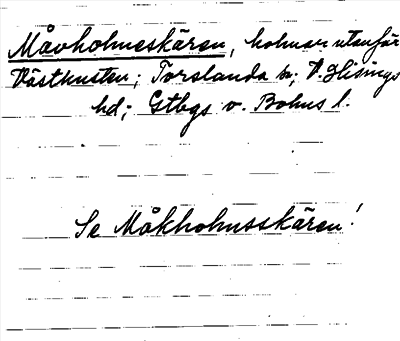 Måvholmeskären, holmar utanför
Västkusten; Torslanda sn; V. Hisings
hd; Gtbgs o. Bohus l.
Se Måkholmsskären!